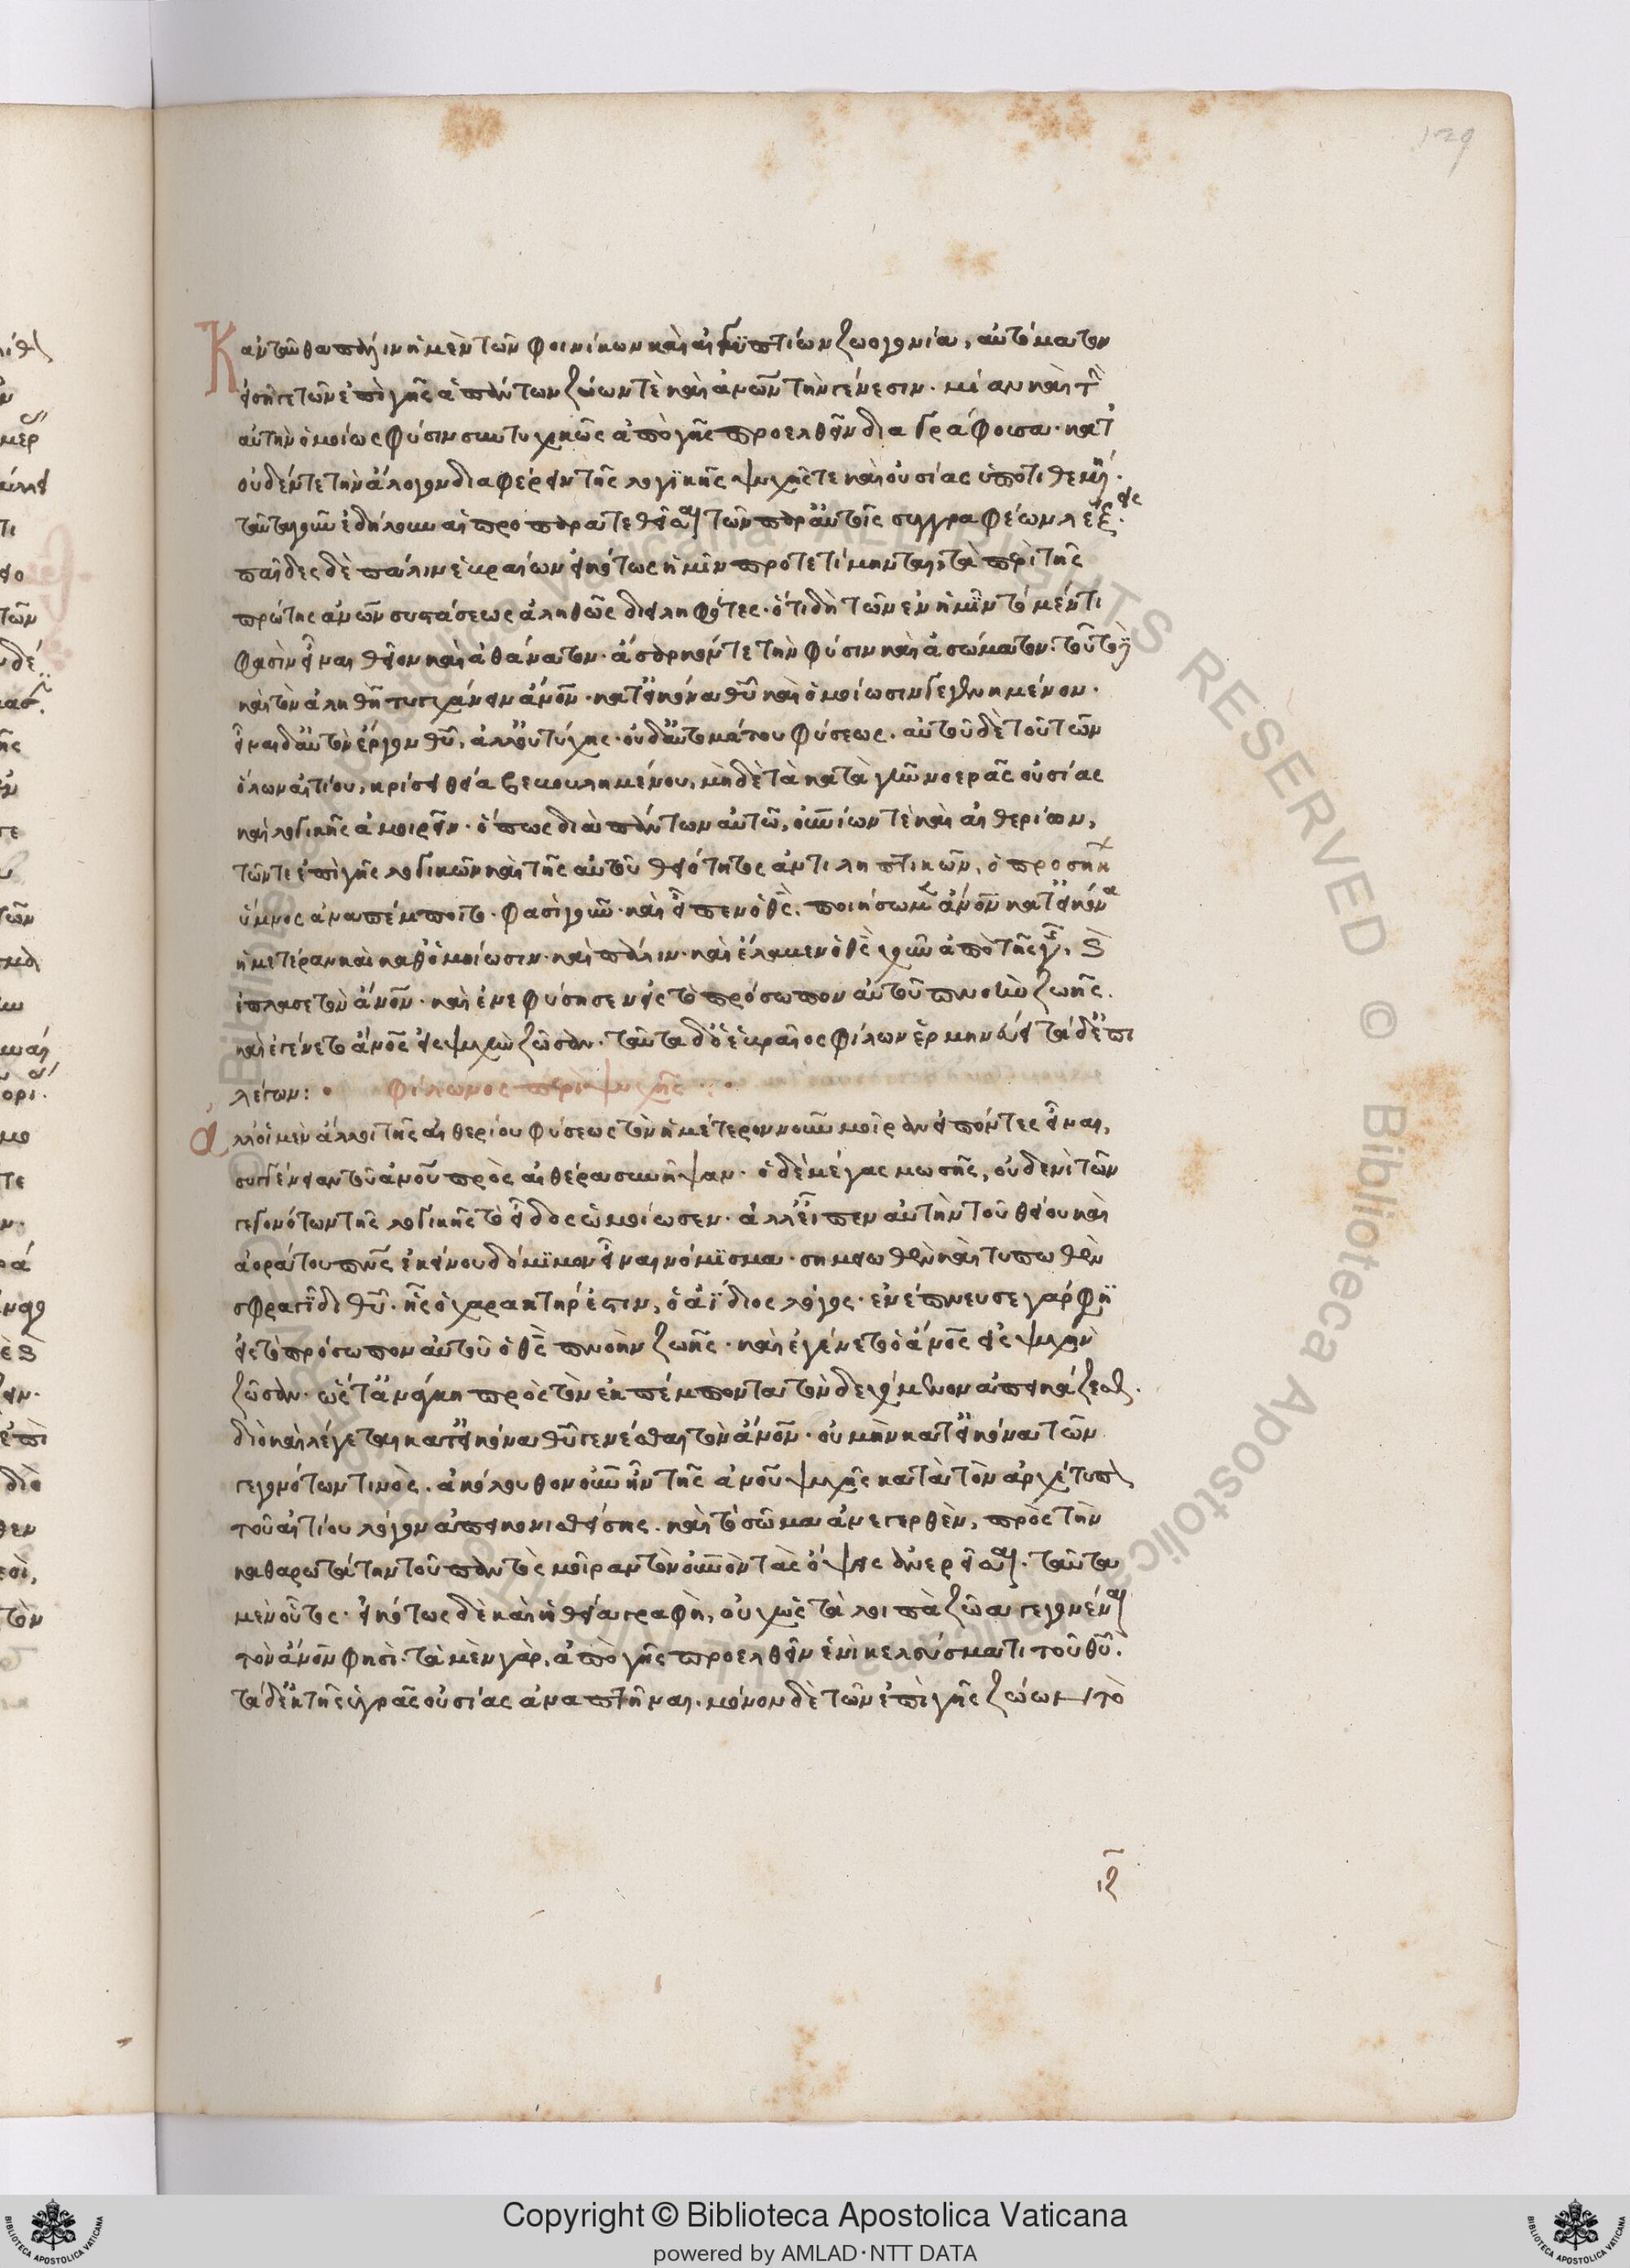 Κἀνταῦθα πάλιν ἡ μὲν τῶν φοινίκων καὶ αἰγϋπτίων ζωογονία, αὐτόματον
εἰσηγεῖτο τῶν ἐπὶ γῆς ἁπάντων ζώων τὲ καὶ ἀν̅ω̅ν τὴν γένεσιν. μίαν καὶ τὴν
αὐτὴν ὁμοίως φύσιν συντυχικῶς ἀπὸ γῆς προελθεῖν διαγράφουσα. κατ'
οὐδέν τε τὴν ἄλογον διαφέρειν τῆς λογϊκῆς ψυχῆς τε καὶ οὐσίας ὑποτιθεμένη.
ταῦτα γοῦν ἐδήλουν αἱ προπαρατεθεῖσαι τῶν παρ' αὐτοῖς συγγραφέων λέξεις.
παῖδες δὲ πάλιν ἑβραίων εἰκότως ἡμῖν προτετίμηνται, τὰ περὶ τῆς
πρώτης ἀν̅ω̅ν συστάσεως ἀληθῶς διειληφότες. ὅτι δὴ τῶν ἐν ἡμῖν τὸ μέντι
φασὶν εἶναι θεῖον καὶ ἀθάνατον. ἄσαρκόν τε τὴν φύσιν καὶ ἀσώματον. τοῦτο δὴ
καὶ τὸν ἀληθῆ τυγχάνειν ἄν̅ο̅ν. κατ' εἰκόνα θ̅υ̅ καὶ ὁμοίωσιν γεγενημένον.
εἶναι δ' αὐτὸν ἔργον θ̅υ̅, ἀλλ' οὐ τύχης. οὐδ' αὐτομάτου φύσεως. αὐτοῦ δὲ τοῦ τῶν
ὅλων αἰτίου, κρίσει θείᾳ βεβουλημένου, μὴ δὲ τὰ κατὰ γῆν νοερᾶς οὐσίας
καὶ λογικῆς ἀμοιρεῖν. ὅπως διὰ πάντων αὐτῷ, οὐ̅ν̅ίων τὲ καὶ αἰθερίων,
τῶν τε ἐπὶ γῆς λογικῶν καὶ τῆς αὐτοῦ θειότητος ἀντιληπτικῶν, ὁ προσήκων
ὕμνος ἀναπέμποιτο. φασὶ γοῦν. καὶ εἶπεν ὁ θ̅ς̅. ποιήσωμεν ἄν̅ο̅ν κατ' εἰκόνα
ἡμετέραν καὶ καθ' ὁμοίωσιν. καὶ πάλιν. καὶ ἔλαβεν ὁ θ̅ς̅ χοῦν ἀπὸ τῆς γῆς, καὶ
ἔπλασε τὸν ἄν̅ο̅ν. καὶ ἐνεφύσησεν εἰς τὸ πρόσωπον αὐτοῦ πνοὴν ζωῆς.
καὶ ἐγένετο ἄν̅ο̅ς εἰς ψυχὴν ζῶσαν. ταῦτα δ' ὁ ἑβραῖος φίλων ἑρμηνεύει τάδ' ἐπι
λέγων:
Φίλωνος περὶ ψυχῆς
ἀλλ' οἱ μὲν ἄλλοι τῆς αἰθερίου φύσεως τὸν ἡμέτερον νοῦν μοῖραν εἰπόντες εἶναι,
συγγένειαν τοῦ ἀν̅ο̅υ πρὸς αἰθέρα συνῆψαν. ὁ δὲ μέγας μωσῆς, οὐδενὶ τῶν
γεγονότων τῆς λογικῆς τὸ εἶδος ὡμοίωσεν. ἀλλ' εἶπεν αὐτὴν τοῦ θείου καὶ
ἀοράτου π̅ν̅ς̅ ἐκείνου δόκϊμον εἶναι νόμϊσμα. σημειωθὲν καὶ τυπωθὲν
σφραγῖδι θ̅υ̅. ἧς ὁ χαρακτήρ ἐστιν, ὁ ἀΐδιος λόγος. ἐνέπνευσε γάρ φησϊ
εἰς τὸ πρόσωπον αὐτοῦ ὁ θ̅ς̅ πνοὴν ζωῆς. καὶ ἐγένετο ὁ ἄν̅ο̅ς εἰς ψυχὴν
ζῶσαν. ὥς τ' ἀνάγκη πρὸς τὸν ἐκπέμποντα τὸν δεχόμενον ἀπεικάζεσθαι.
διὸ καὶ λέγεται κατ' εἰκόνα θ̅υ̅ γενέσθαι τὸν ἄν̅ο̅ν. οὐ μὴν κατ' εἰκόνα τῶν
γεγονότων τινὸς. ἀκόλουθον οὖν ἦν τῆς ἀν̅ο̅υ ψυχῆς κατὰ τὸν ἀρχέτυπον
τοῦ αἰτίου λόγον ἀπεικονισθείσης. καὶ τὸ σῶμα ἀνεγερθὲν, πρὸς τὴν
καθαρωτάτην τοῦ παντὸς μοῖραν τὸν οὐ̅ν̅ὸν τὰς ὄψεις ἀνερεῖσαι. ταῦτα
μὲν οὗτος. εἰκότως δὲ καὶ ἡ θεία γραφὴ, οὐχ ὡς τὰ λοιπὰ ζῶα γεγονέναι
τὸν ἄν̅ο̅ν φησὶ. τὰ μὲν γὰρ, ἀπὸ γῆς προελθεῖν ἑνὶ κελεύσματι τοῦ θ̅υ̅.
τὰ δ' ἐκ τῆς ὑγρᾶς οὐσίας ἀναπτῆναι. μόνον δὲ τῶν ἐπὶ γῆς ζώων, τὸ
129
Copyright © Biblioteca Apostolica Vaticana
powered by AMLAD·NTT DATA